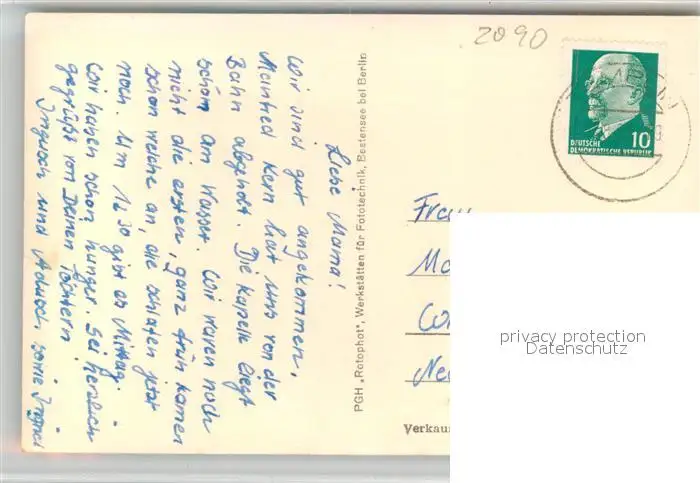 2090
10
DEUTSCHE
DEMOKRATISCHE REPUBLIK
Liebe Mama!
Wir sind gut angekommen,
Manfred Kern hat uns von der
Bahn abgeholt. Die Kapelle liegt
schön am Wasser. Wir waren noch
nicht die ersten, ganz früh kamen
schon welche an, die schlafen jetzt
noch. Um 12.30 gibt es Mittag.
Wir haben schon Hunger. Sei herzlich
gegrüßt von Deinen Töchtern
und sowie
PGH „Rotophot", Werkstätten für Fototechnik, Bestensee bei Berlin
Frau
Verkaus
privacy protection
Datenschutz